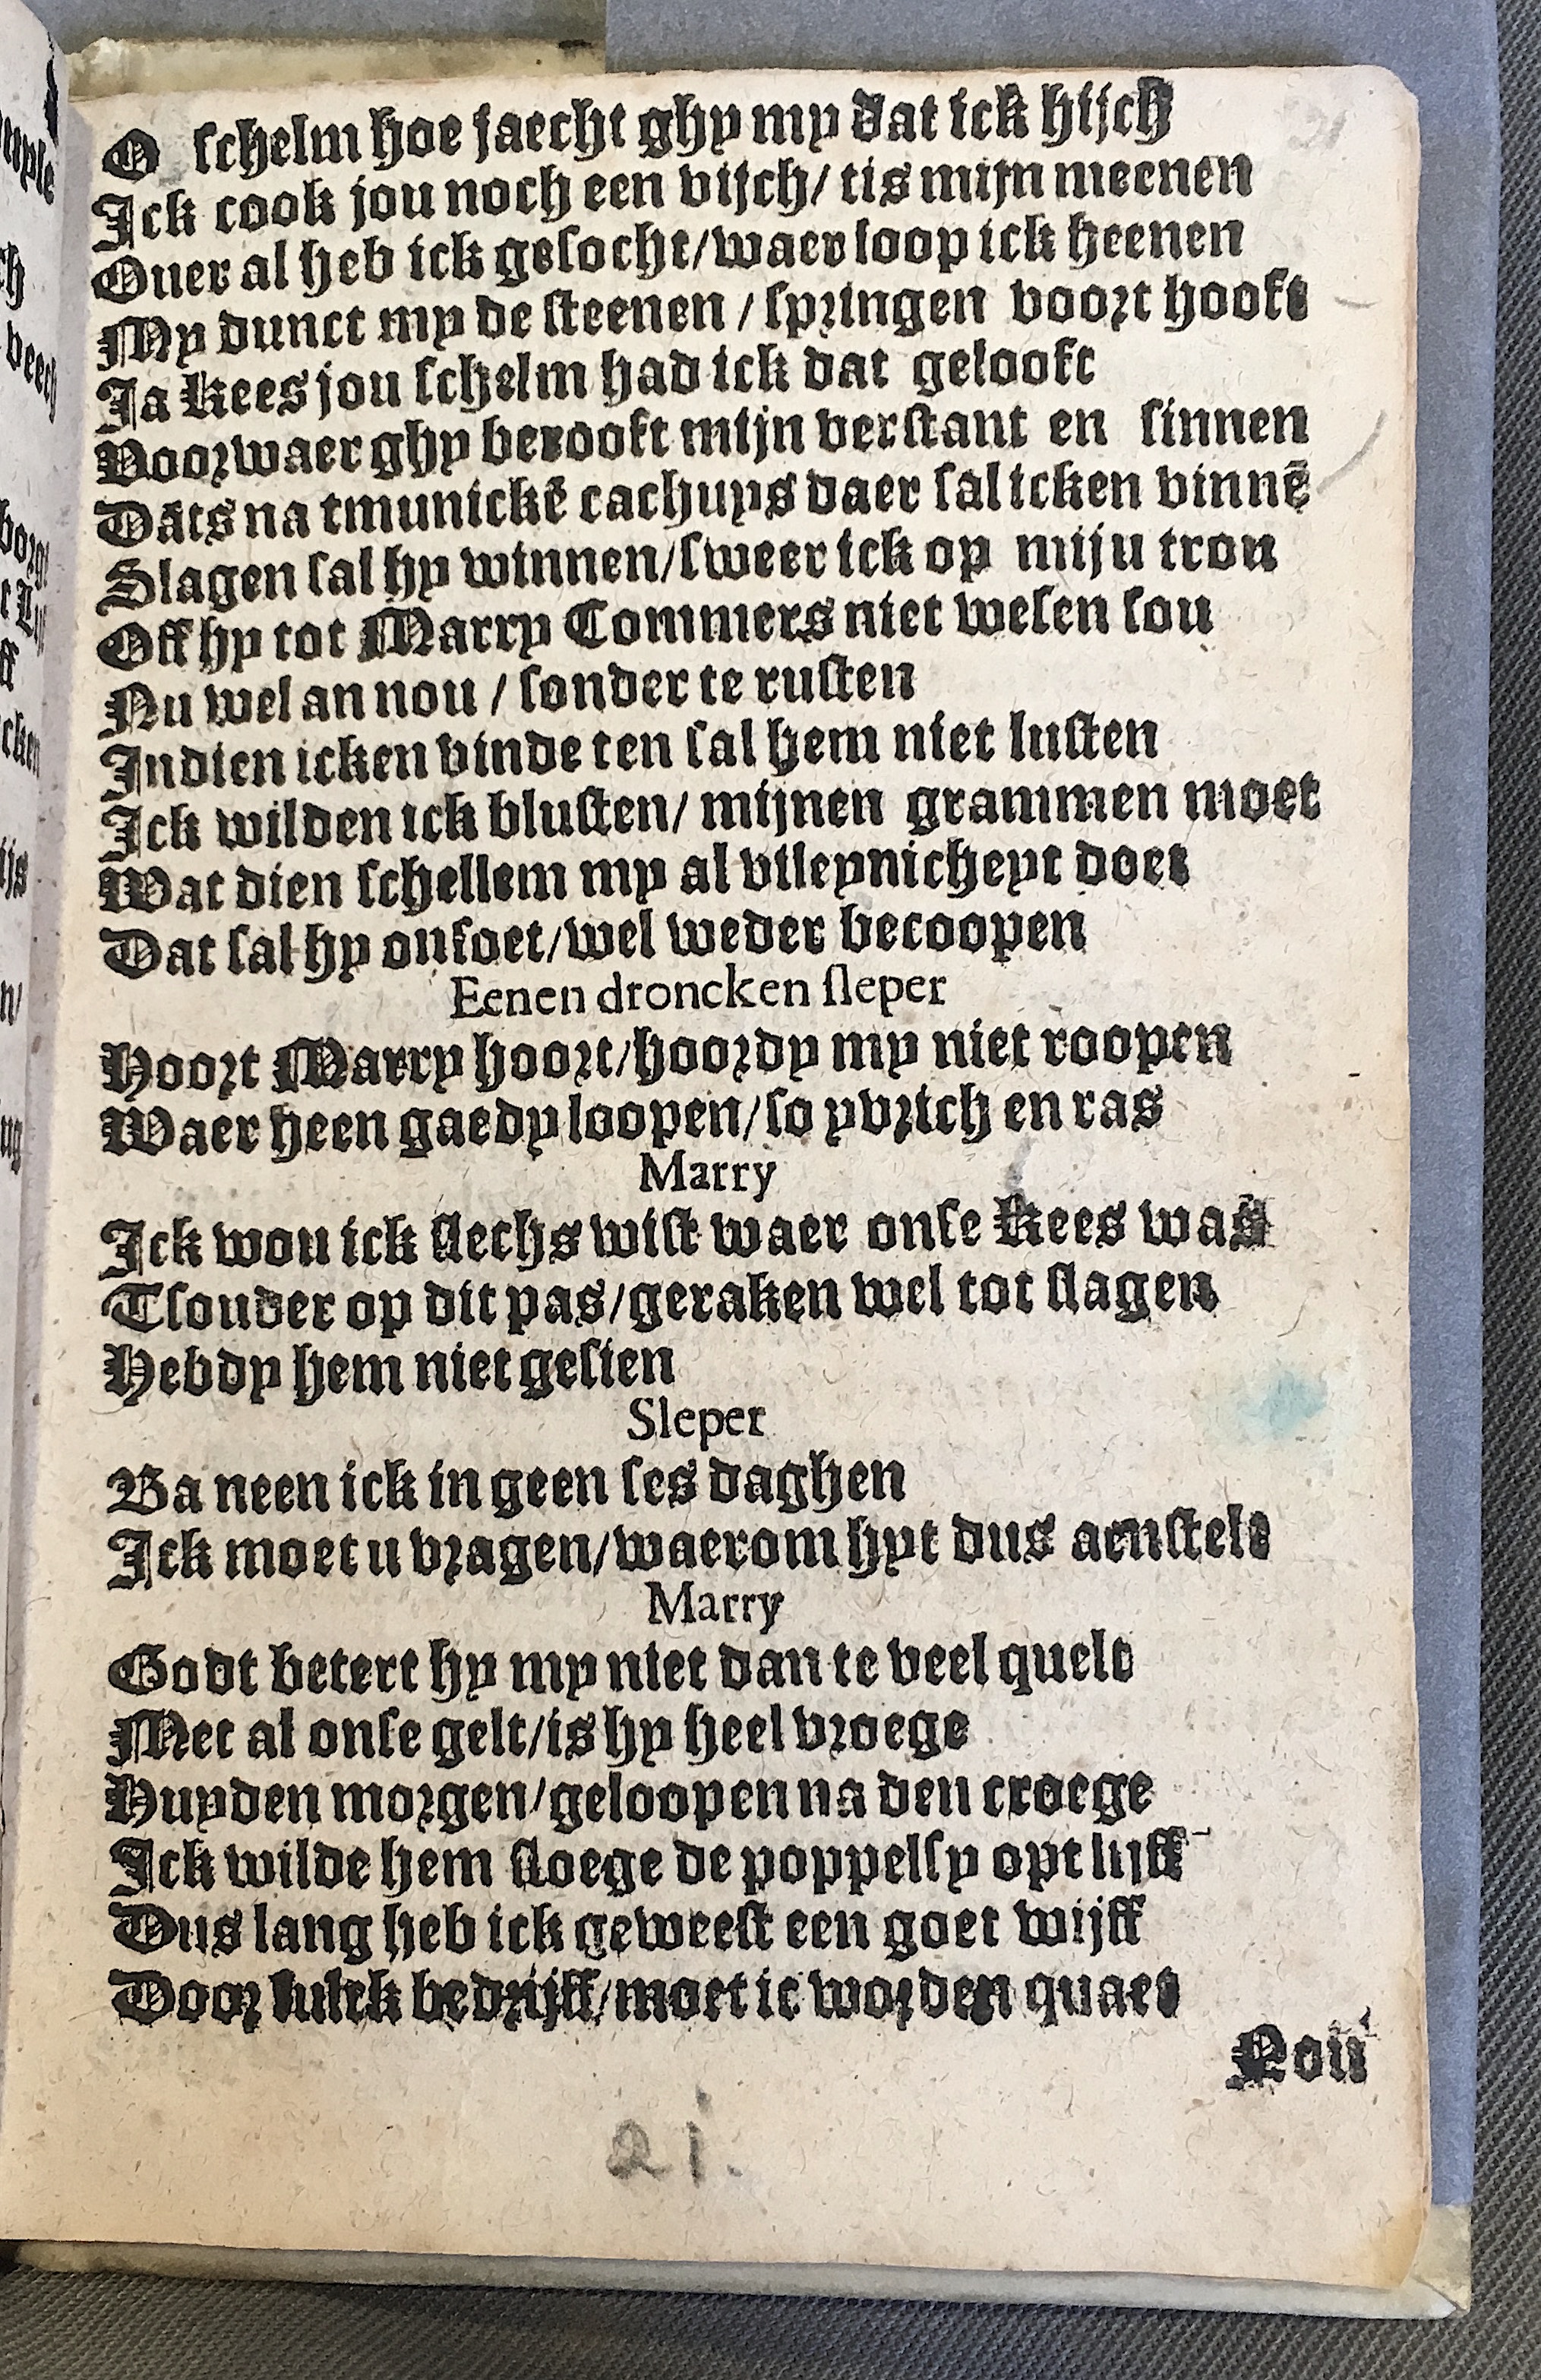 O schelm hoe jaecht ghy my dat ick hijch
Ick cook jou noch een visch/ tis mijn meenen
Ouer al heb ick gesocht/waer loop ick heenen
My dunct my de steenen / springen voort hooft
Ja Kees jou schelm had ick dat gelooft
Voorwaer ghy berooft mijn verstant en sinnen
Dāts na tmunickē cachuys daer sal icken vinnē
Slagen sal hy winnen/sweer ick op miju trou
Off hy tot Marry Commers niet wesen sou
Nu wel an nou / sonder te rusten
Indien icken vinde ten sal hem niet lusten
Ick wilden ick blusten/ mijnen grammen moet
Wat dien schellem my al vileynicheyt doet
Dat sal hy onsoet/wel weder becoopen
Eenen droncken sleper
Hoort Marry hoort/hoordy my niet roopen
Waer heen gaedy loopen/so yvrich en ras
Marry
Ick wou ick slechs wist waer onse Kees was
Tsouder op dit pas/geraken wel tot slagen
Hebdy hem niet gesien
Sleper
Ba neen ick in geen ses daghen
Ick moet u vragen/waerom hyt dus aenstelt
Marry
Godt betert hy my niet dan te veel quelt
Met al onse gelt/is hy heel vroege
Huyden morgen/geloopen na den croege
Ick wilde hem sloege de poppelsy opt lijff
Dus lang heb ick geweest een goet wijff
Door sulck bedrijff/moet ic worden quaet
Nou
21.
21